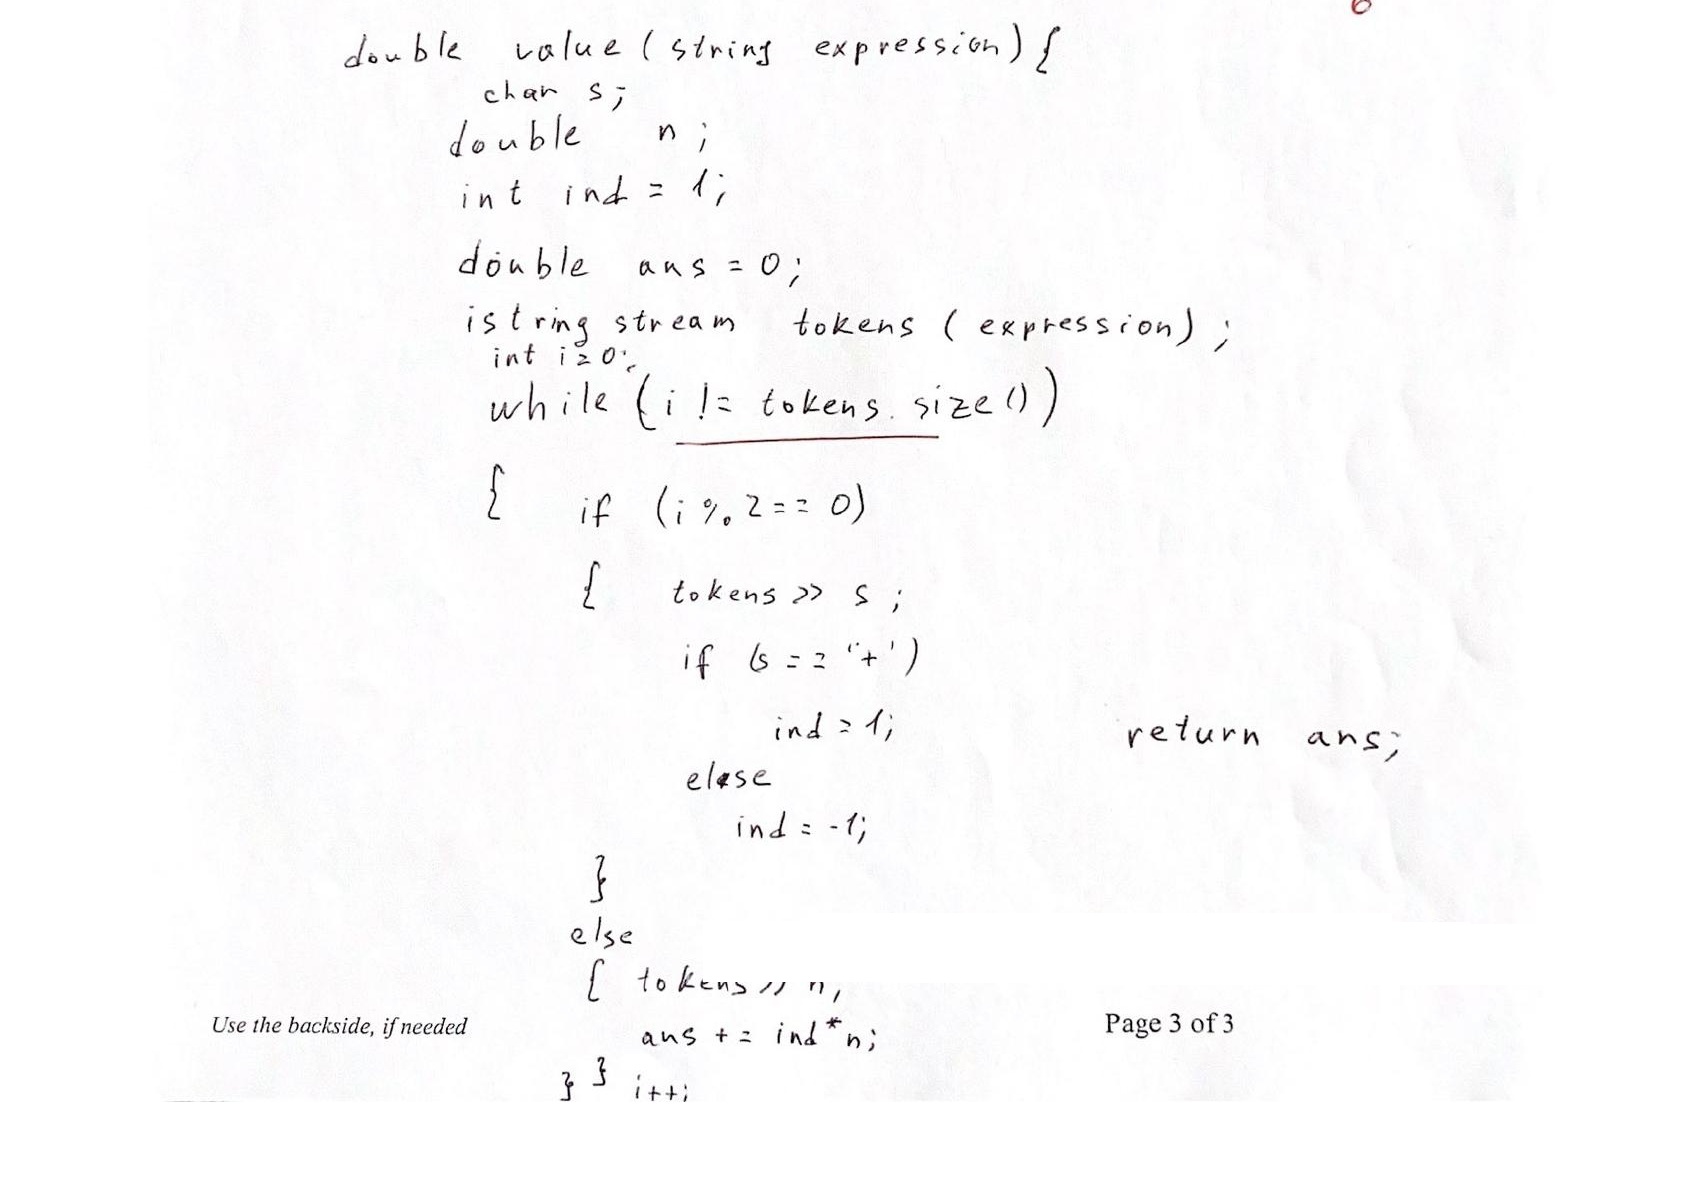 double value (string expression) {
char s;
double n;
int ind = 1;
double ans = 0;
istring stream tokens (expression);
int i=0;
while (i != tokens.size())
{ if (i % 2 == 0)
{ tokens >> s;
if (s == '+')
ind = 1;
else
ind = -1;
}
else
{ tokens >> n;
ans += ind*n;
} } i++;
return ans;
Use the backside, if needed
Page 3 of 3